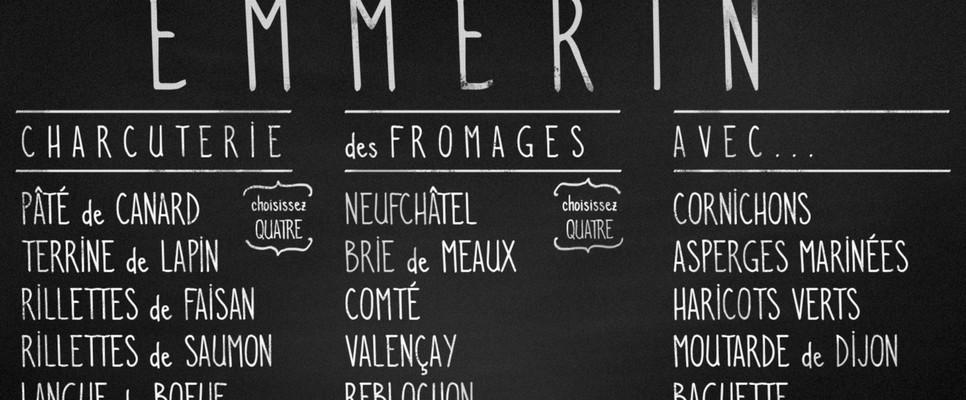 EMMERIN
CHARCUTERIE
PÂTÉ de CANARD
TERRINE de LAPIN
RILLETTES de FAISAN
RILLETTES de SAUMON
LANGUE de BOEUF
choisissez
QUATRE
des FROMAGES
NEUFCHÂTEL
BRIE de MEAUX
COMTÉ
VALENÇAY
REBLOCHON
choisissez
QUATRE
AVEC...
CORNICHONS
ASPERGES MARINÉES
HARICOTS VERTS
MOUTARDE de DIJON
BAGUETTE